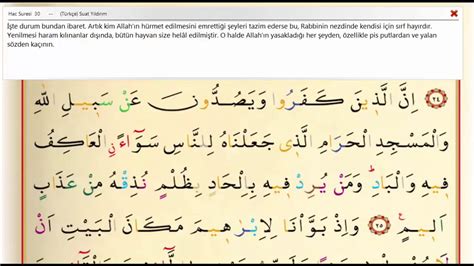 Hac Suresi 30 — (Türkçe) Suat Yıldırım
İşte durum bundan ibaret. Artık kim Allah'ın hürmet edilmesini emrettiği şeyleri tazim ederse bu, Rabbinin nezdinde kendisi için sırf hayırdır.
Yenilmesi haram kılınanlar dışında, bütün hayvan size helâl edilmiştir. O halde Allah'ın yasakladığı her şeyden, özellikle pis putlardan ve yalan
sözden kaçının.
﴿٢٤﴾ اِنَّ الَّذٖينَ كَفَرُوا وَيَصُدُّونَ عَنْ سَبٖيلِ اللّٰهِ
وَالْمَسْجِدِ الْحَرَامِ الَّذٖى جَعَلْنَاهُ لِلنَّاسِ سَوَٓاءًۨ الْعَاكِفُ
فٖيهِ وَالْبَادِ وَمَنْ يُرِدْ فٖيهِ بِاِلْحَادٍ بِظُلْمٍ نُذِقْهُ مِنْ عَذَابٍ
اَلٖيمٍ ﴿٢٥﴾ وَاِذْ بَوَّاْنَا لِاِبْرٰهٖيمَ مَكَانَ الْبَيْتِ اَنْ